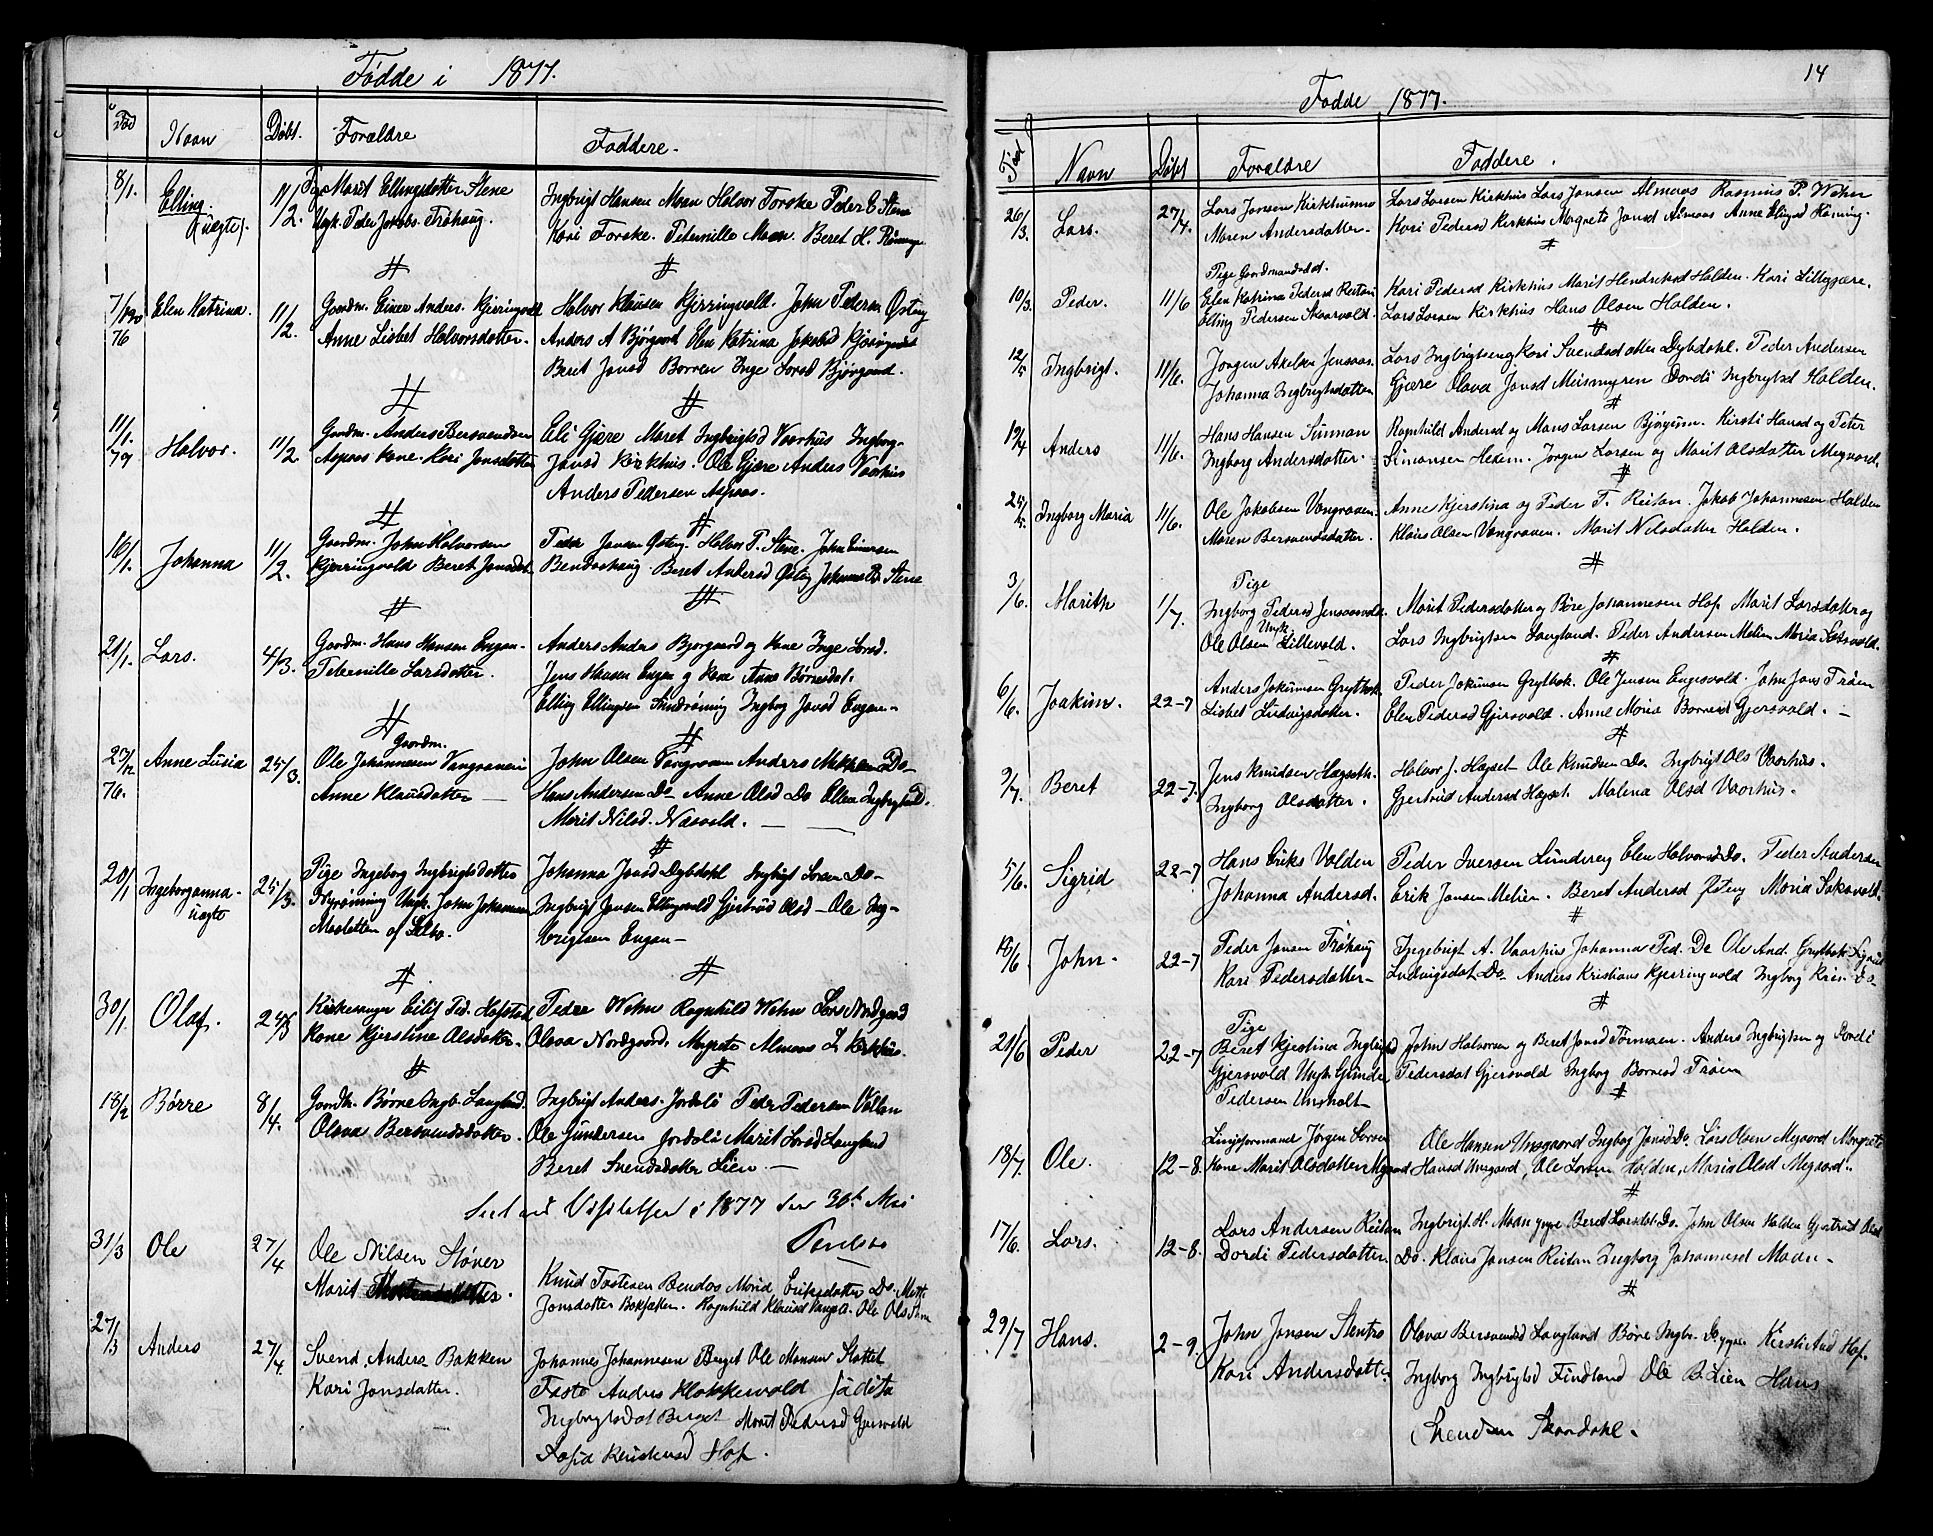 Fødde i 1877.
Fød Navn Døbt. Forældre Faddere.
8/1. Elling. (uægte). 11/2. Pige Marit Ellingsdatter Stene
Ungk. Peder Jakobs. Trøhaug.
Ingbrigt Hansen Moen Halvor Forske Peder E Stene
Kari Forske. Peternille Moen. Beret H. Rønning
7/12 76 Elen Katrina. 11/2. Gaardm. Einer Anders. Kjerringvold
Anne Lisbet Halvorsdatter.
Halvor Klausen Kjerringvold. John Pedersen Østeng
Anders A Bjørgaard Elen Katrina Jakobsd Kjerringvold
Berit Jonsd Borren Inge Larsd Bjørgaard.
11/1. 77 Halvor. 11/2 Gaardm. Anders Bersvendsen
Aspaas Kone Kari Jonsdatter
Eli Gjære Maret Ingbrigtsd Vaarhus Ingborg
Jonsd Kirkhus. Ole Gjære Anders Vaarhus
Anders Pedersen Aspaas.
16/1. Johanna 11/2. Gaardm. John Halvorsen
Kjerringvold Beret Jonsdat
Peder Jonsen Østeng. Halvor P. Stene. John Einersen
Bendoshaug. Beret Andersd Østeng Johanna P. Stene
21/1. Lars. 4/3. Gaardm. Hans Hansen Engan
Petternille Larsdatter.
Anders Anders Bjørgaard og Kone Inge Larsd.
Jens Hansen Engen og Kone Anne Børresdat.
Elling Ellingsen Sundrøning Ingborg Jonsd Engan
25/12 76. Anne Lusia 25/3. Gaardm.
Ole Johannesen Vangraven
Anne Klausdatter
John Olsen Vangraven Anders Do
Hans Andersen Do Anne Olsd Do Ellen Ingbrigtsd.
Merit Nilsd. Næsvold.
20/1 Ingeborganna uægte 25/3. Pige Ingeborg Ingbrigtsdatter
Nyrønning Ungk. John Johannesen
Mosletten af Selbo.
Johanna Jonsd Dybdahl Ingbrigt Larsen Do
Ingbrigt Jonsen Ellingvold Gjertrud Olsd Ole Ing-
brigtsen Engan
30/1. Olaf. 25/3 Kirkesanger Eilif Ped. Hofstad
Kone Kjerstine Olsdatter.
Pedre Wehn Ragnhild Wehn Lars Nordgaard
Olava Nordgaard. Magrete Almaas L Kirkhus.
18/2 Børre 8/4. Gaardbr. Børre Ingb. Langland.
Olava Bersvendsdatter.
Ingbrigt Anders. Jordalo Peder Pedersen Vollan
Ole Gundersen Jordalo Marit Larsd Langland
Beret Svendsdatter Lien.
Seet ved Visitatsen i 1877 den 30te Mai
31/3 Ole 27/4 Ole Nilsen Støver
Marit .
Knud Fastesen Bendos Marid Eriksdatter Do. Mett
Jonsdatter Bokfakken. Ragnhild Klausd Ole Ols
27/3 Anders 27/4 Svend Anders. Bakken
Kari Jonsdatter.
Johannes Johannesen Berget Ole Monsen Slottet
Faste Anders Klokkervold Judita
Ingbrigtsdat Berget Marit Pedersd Gjersvold
Sofia Hof.
14
Fødde 1877.
Fød Navn Døbt Forældre Faddere.
26/3. Lars. 27/4. Lars Jonsen Kirkhusmo
Maren Andersdatter
Lars Larsen Kirkhus Lars Jonsen Almaas Rasmus P. Wehn
Kari Pedersd Kirkhus Magrete Jonsd Almaas Anne Elingsd Rønning.
10/3. Peder. 11/6 Pige Gaardmandsdat.
Elen Katrina Pedersd Reitan
Elling Pedersen Skaarvold.
Kari Pedersd Kirkhus Marit Hendriksd Halden. Kari Lillegjære.
Lars Larsen Kirkhus Hans Olsen Halden.
12/5 Ingbrigt. 11/6. Jørgen Axelsen Jensaas.
Johanna Ingbrigtsdatter
Lars Ingbrigtsen og Kari Svendsdatter Dybdahl. Peder Andersen
Gjære Olava Jonsd Meismyren Dordi Ingbrigtsd Halden.
19/4 Anders 11/6. Hans Hansen Sunnan
Ingborg Andersdatter.
Ragnhild Andersd og Mons Larsen Bjørgum. Kirsti Hansd og Peter
Simonsen Hexem. Jørgen Larsen og Marit Olsdatter Megaard.
25/5. Ingborg Maria 11/6. Ole Jakobsen Vongraven.
Maren Bersvendsdatter.
Anne Kjerstina og Peder P. Reitan. Jakob Johannesen Halden
Klaus Olsen Vongraven. Marit Nilsdatter Halden.
3/6. Marith 1/7. Pige
Ingborg Pedersd Jensaasvold.
Ungk.
Ole Olsen Lillevold.
Marit Pedersdatter og Børe Johannesen Hof Marit Larsdatter og
Lars Ingbrigtsen Langland. Peder Andersen Melien Maria Saksvold.
6/6. Joakim. 22-7 Anders Jokumsen Grytbak.
Lisbet Ludvigsdatter.
Peder Jokumsen Grytbak. Ole Jensen Engesvold. John Jons Trøen
Elen Pedersd Gjersvold. Anne Maria Borresd Gjersvold.
9/7. Beret 22-7. Jens Knudsen Hagseth.
Ingborg Olsdatter.
Halvor J. Hagset Ole Knudsen Do. Ingbrigt Ols Vaarhus.
Gjertrud Andersd Hagset. Malena Olsd Vaarhus.
5/6. Sigrid 22-7 Hans Eriks Valden
Johanna Andersd.
Peder Iversen Lunden og Elen Halvorsd Do. Peder Andersen
Erik Jonsen Melien. Beret Andersd Østeng Marid Saksvold.
18/6 John. 22-7 Peder Jonsen Trøhaug
Kari Pedersdatter
Ingebrigt A. Vaarhus Johanna Ped. Do Ole And. Grytbak Sigrid
Ludvigsdat Do. Anders Kristians Kjerringvold Ingborg Kris. Do
21/6 Peder 22-7 Pige
Beret Kjerstina Ingbrigtsd
Gjersvold Ungk. Gunder
Pedersen Unsholt
John Halvorsen og Beret Jonsd Tørmoen. Anders Ingbrigtsen og Dordi
Pedersdat Gjersvold Ingborg Borresd Trøen
18/7. Ole. 12-8. Linjeformand Jørgen Larsen
Kone Marit Olsdatter Megaard
Ole Hansen Unsgaard Ingbog Jonsd Do. Lars Olsen Megaard Margrete
Hansd Unsgaard, Ole Larsen Halden, Maria Olsd Megaard.
17/6. Lars. 12-8. Lars Andersen Reitan
Dordi Pedersdatter
Ingbrigt H. Moan yngre Beret Larsdat. Do. John Olsen Halden Gjertrud Olsd
Do. Klaus Jonsen Reitan Ingborg Johannesd Moan
29/7 Hans. 2-9. John Jonsen Stentrø
Kari Andersdatter
Olava Bersvendsd Langland Børe Ingbr. Do yngre Kirsti And Hof.
Ingborg Ingbrigtsd Findland Ole B Lien Hans
Svendsen Skaardahl.